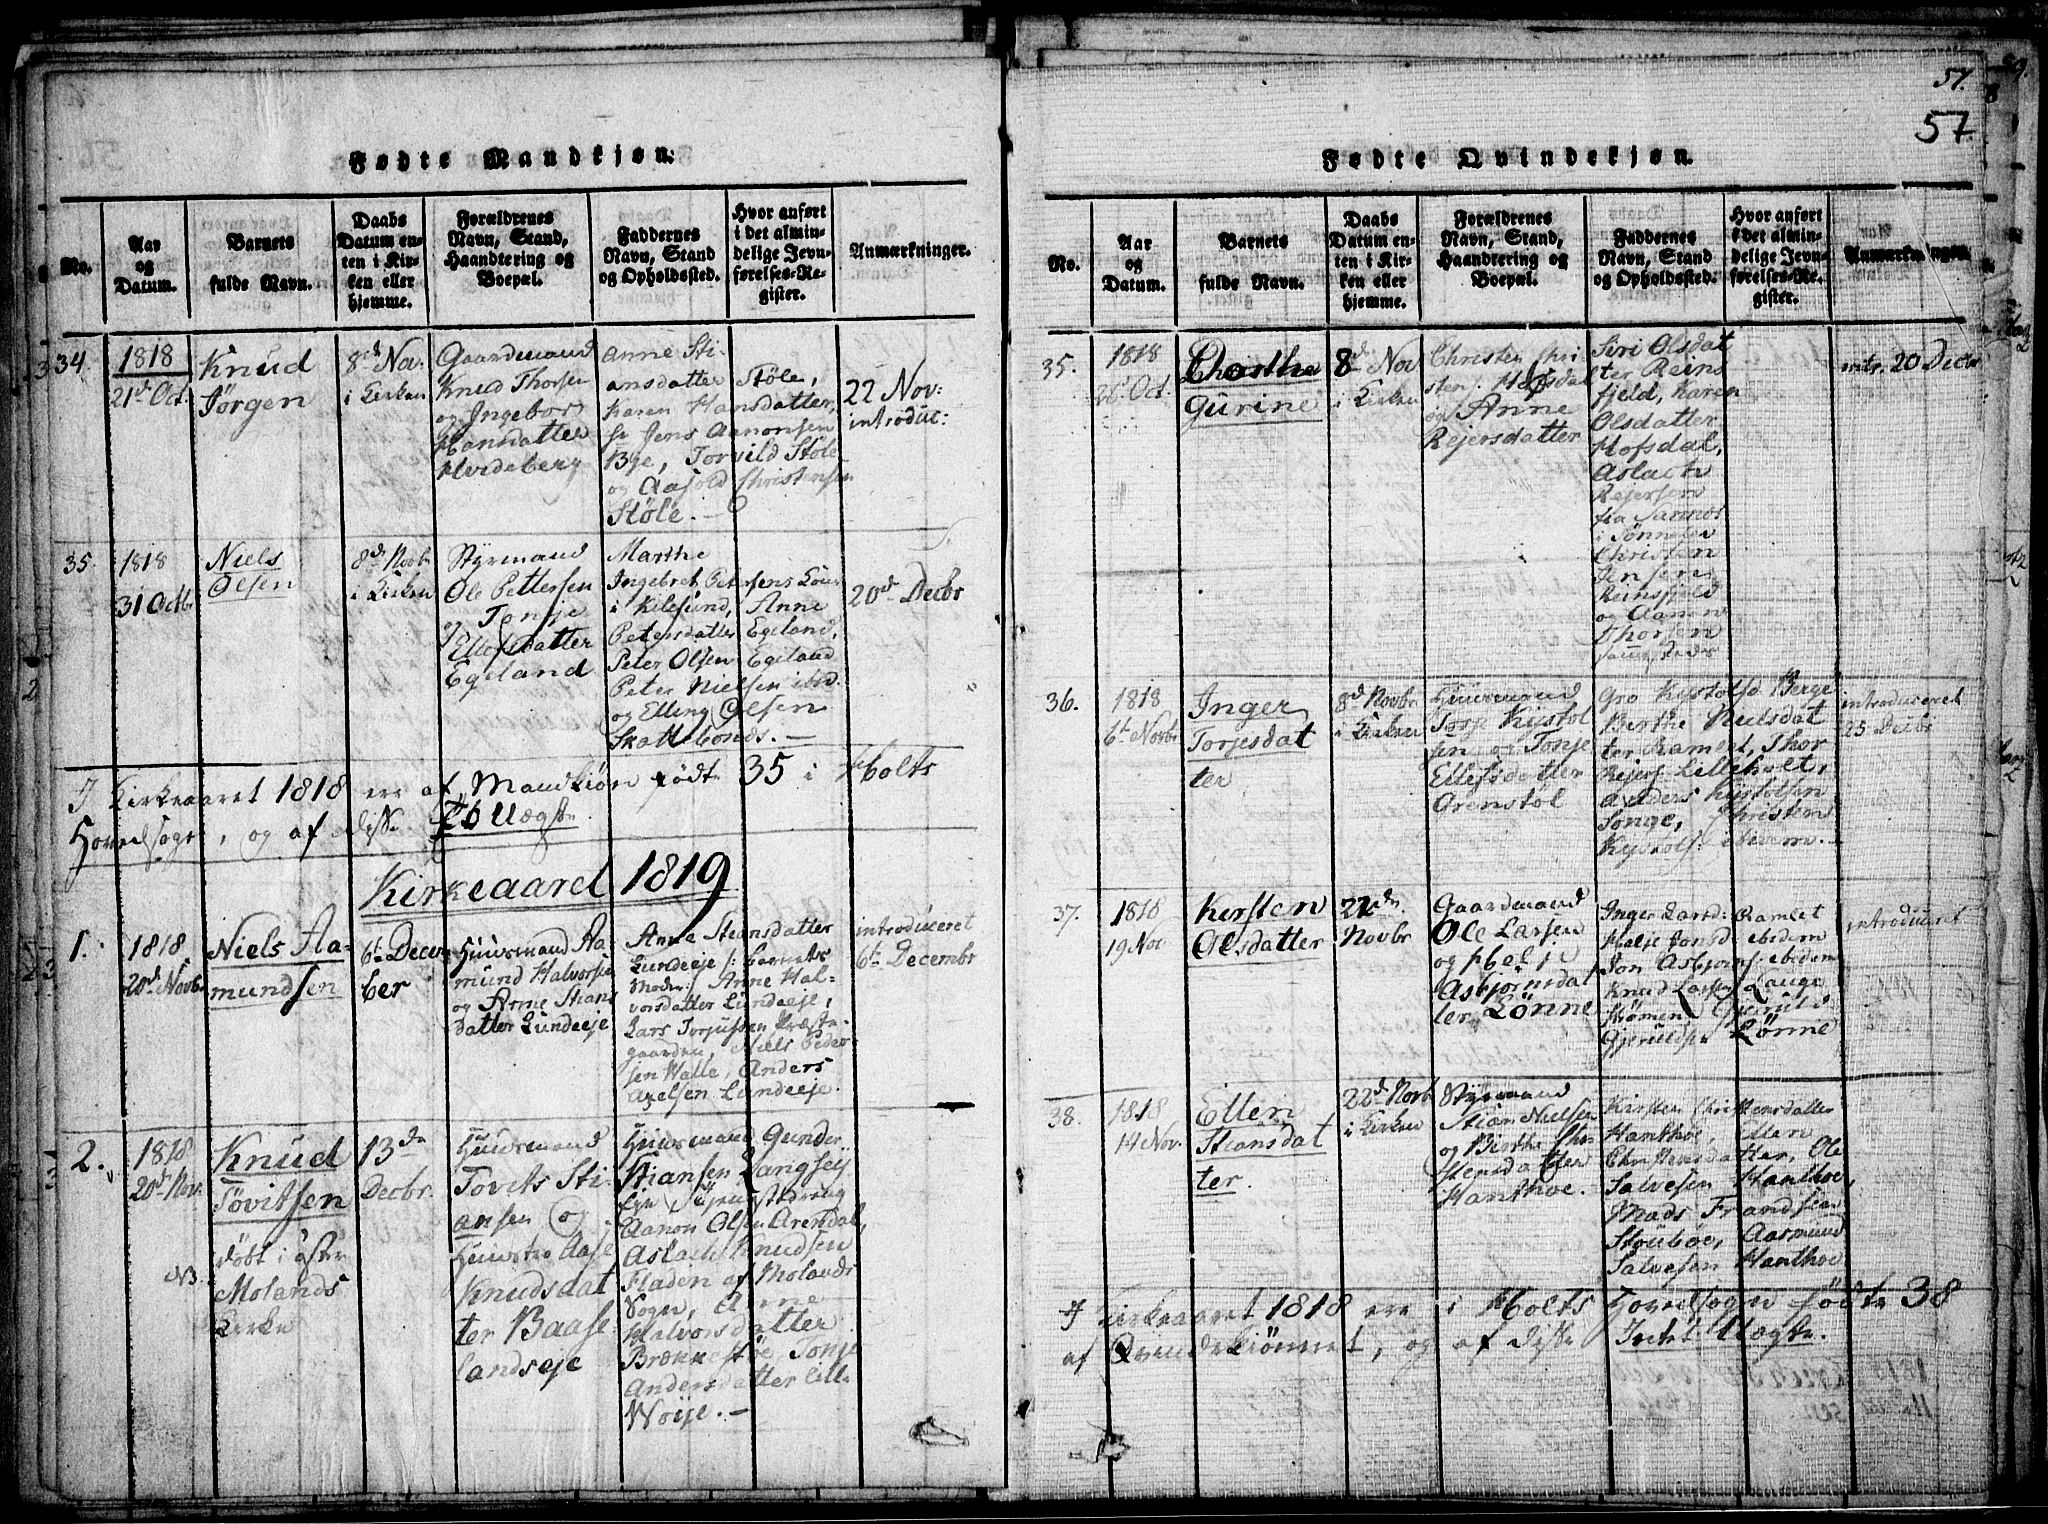 Fødte Mandkjøn:
No.
Aar
og
Datum.
Barnets
fulde Navn.
Daabs
Datum en-
ten i Kir-
ken eller
hjemme.
Forældrenes
Navn, Stand,
Haandtering og
Boepæl.
Faddernes
Navn, Stand
og Opholdssted.
Hvor anført
i det almin-
delige Jevn-
førelses-Re-
gister.
Anmærkninger.
34.
1818
21d Oct:
Knud
Jörgen
8d Nov:
i Kirken
Gaardmand
Knud Thorsen
og Ingebor
Hansdatter
Hvideberg
Anne Sti-
ansdatter Støle,
Karen Hansdatter,
Jens Aanonsen
Bye, Torvild Støle
og Aasold Christensen
Støle. —
22 Nov:
introdu:
35.
1818
31 Octbr
Niels
Olsen
8d Novbr
i Kirken
Styrmand
Ole Pettersen
og Tonje
Ellefsdatter
Egeland
Marthe
Ingebret Petersens Kone
i Kilesund, Anne
Petersdatter Egeland,
Peter Olsen Egeland
Peter Nielsen ibid.
og Elling Olsen
Skattebonds. —
20d Decbr
I Kirkeaaret 1818 ere af Mandkiøn födte 35 i Holts
Hovedsogn, og af disse Uægte.
Kirkeaaret 1819
1.
1818
20d Novbr
Niels Aa-
mundsen
6te Decem-
ber
Huusmand Aa
mund Halvorsen
og Anne Stians
datter Lundeeje
Anne Steansdatter
Lundeeje /: barnets
Moder:/ Anne Hal-
vorsdatter Lundeeje,
Lars Torjussen Præste-
gaarden, Niels Peder-
sen Walle, Anders
Axelsen Lundeeje.
introduceret
6te Decembr
2.
1818
20d Nov.
NB.
Knud
Tövitsen
döbt i öster
Molands
Kirke
13de
Decbr.
Huusmand
Tovits Sti-
ansen og
Hustro Aase
Knudsdat
ter Baase
landseje
Huusmand Gunder
Stiansen Langseij
Eje,
Aanon Olsen Arendal,
Aslach Knudsen
Fladen af Molands
Sogn, Anne
Halvorsdatter
Brækkestöe Tonje
Andersdatter Lille
Woije. —
Fødte Qvindekjøn.
57.
57
No.
Aar
og
Datum.
Barnets
fulde Navn.
Daabs
Datum en-
ten i Kir-
ken eller
hjemme.
Forældrenes
Navn, Stand,
Haandtering og
Boepæl.
Faddernes
Navn, Stand
og Opholdssted.
Hvor anført
i det almin-
delige Jevn-
førelses-Re-
gister.
Anmærkninger.
35.
1818
26 Oct.
Dorthe
Gurine
8d Nov
i Kirken
Christen Chri
stens: Hofsdal
og Anne
Rejersdatter
Siri Olsdat
ter Reins
fjeld, Karen
Olsdatter
Hofsdal,
Aslach
Rejersen
fra Sannes
i Tønnes
Christen
Jensen
Reinsfjeld
og Aanen
Thorsen
intr. 20 Decbr
36.
1818
6te Novbr
Inger
Torjesdat
ter
8d Novbr
i Kirken
Huusmand
Torje Kistol
sen og Tonje
Ellefsdatter
Grenstöl
Gro Kistolsd Berge
Berthe Neilsdat
ter Ramlet, Thor
Rejers Lilleholt,
Anders Kistolsen
Songe, Christen
Kistols: ibidem. —
introduceret
25 Decbr
37.
1818
19 Nov
Kersten
Olsdatter
22de
Novbr
Gaardmand
Ole Larsen
og Helje
Asbjørnsdat
ter Lönne
Inger Larsd: Ramlet
Helje Jonsd ibidem
Jon Asbjørns: ibidem
Knud Larsen Lauge
strömen Gjeruld
Gjeruldsen Lönne
introduceret
38.
1818
14 Nov.
Ellen
Steansdat
ter.
22d Novb
i Kirken
Styrmand
Stian Nielsen
og Birthe Chri
stensdatter
Hanthoe.
Kirsten Christensdatter
Hanthoe, Ellen
Christensdatter, Ole
Salvesen Hanthoe,
Mads Frandsen
Stoubøe, Aasmund
Salvesen Hanthoe
I Kirkeaaret 1818 ere i Holts Hovedsogn födte 38
af Qvindekiönnet, og af disse Intet Uægte.